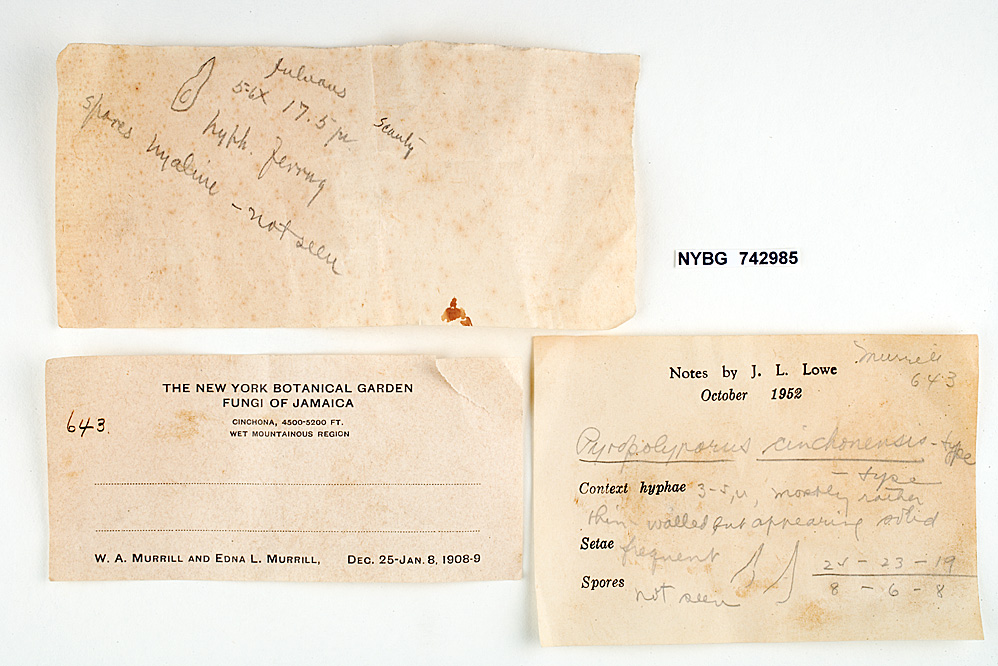 fulvous
5-6x 17.5 µ scanty
hyph. ferrug
spores hyaline - not seen
NYBG 742985
THE NEW YORK BOTANICAL GARDEN
FUNGI OF JAMAICA
CINCHONA, 4500-5200 FT.
WET MOUNTAINOUS REGION
643.
W. A. MURRILL AND EDNA L. MURRILL, DEC. 25-JAN. 8, 1908-9
Murrill
643
Notes by J. L. Lowe
October 1952
Pyropolyporus cinchonensis - type
- type
Context hyphae 3-5 µ, mostly rather
thin-walled but appearing solid
Setae frequent
25 - 23 - 19
8 - 6 - 8
Spores not seen